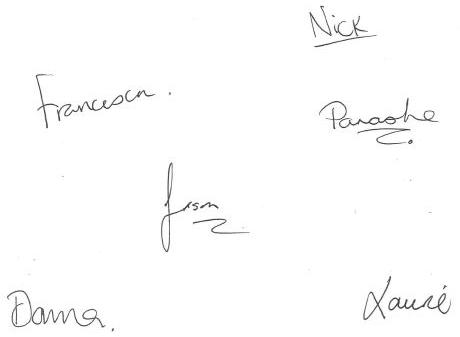 Nick
Francesca.
Panashe
Jason
Danna.
Laurie